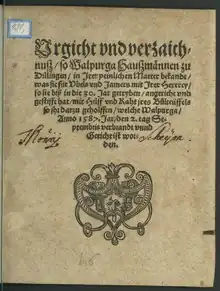 Urgicht vnd verzaich-
nuß / so Walpurga Haußmännen zu
Dillingen / in Jrer peinlichen Marter bekandt /
was sie für Vbels vnd Jamers mit Jrer Hexerey /
so sie biß in die 30. Jar getryben / angericht vnd
gestifft hat / mit Hilff vnd Raht jres Bůlteüffels
so jhr darzu geholffen / welche Walpurga /
Anno 1587. Jar / den 2. tag Se-
ptembris verbrandt vnnd
Gericht ist wor-
den.